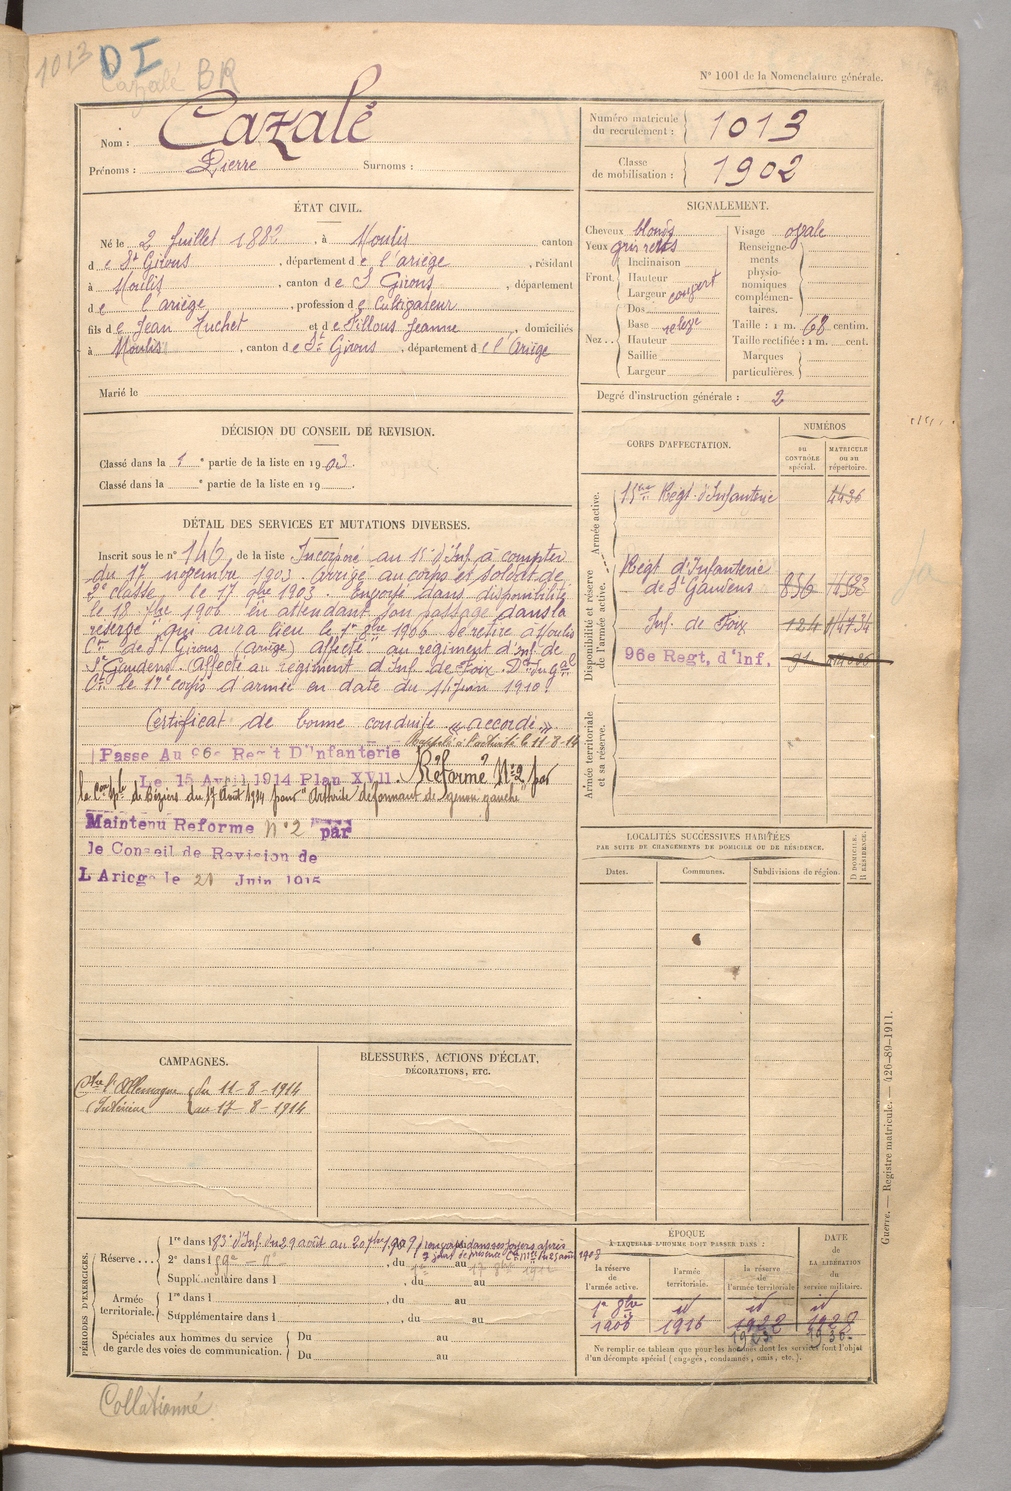 1013 D I
Cazalé BR
N° 1001 de la Nomenclature générale.
Nom : Cazalé
Prénoms : Pierre Surnoms :
Numéro matricule du recrutement : 1013
Classe de mobilisation : 1902
ÉTAT CIVIL.
Né le 2 Juillet 1882, à Moulis canton
de St Girons, département de l'ariège, résidant
à Moulis, canton de St Girons, département
de l'ariège, profession de Cultivateur
fils de Jean et de Fillous Jeanne, domiciliés
à Moulis, canton de St Girons, département de l'Ariège
Marié le
SIGNALEMENT.
Cheveux blonds
Yeux gris verts
Front. Inclinaison
Hauteur
Largeur couvert
Nez.. Dos
Base relevé
Hauteur
Saillie
Largeur
Visage ovale
Renseignements physionomiques complémentaires.
Taille : 1 m. 68 centim.
Taille rectifiée : 1 m. cent.
Marques particulières.
Degré d'instruction générale : 2
DÉCISION DU CONSEIL DE REVISION.
Classé dans la 1e partie de la liste en 1903.
Classé dans la e partie de la liste en 19 .
CORPS D'AFFECTATION.
NUMÉROS
au CONTRÔLE spécial.
MATRICULE ou au répertoire.
Armée active.
15me Régt d'Infanterie 4436
Disponibilité et réserve de l'armée active.
Régt d'Infanterie
de St Gaudens 836
Inf. de Foix 124
96e Regt, d'Inf. 91
Armée territoriale et sa réserve.
DÉTAIL DES SERVICES ET MUTATIONS DIVERSES.
Inscrit sous le n° 146 de la liste Incorporé au 15e d'Inf. à compter
du 17 novembre 1903. arrivé au corps et soldat de
2e classe le 17 9bre 1903. Envoyé dans disponibilité
le 18 7bre 1906 en attendant son passage dans la
réserve qui aura lieu le 1er 8bre 1906 Se retire à Moulis
Con de St Girons (Ariège) Affecté au régiment d'inf. de
St Gaudens. Affecté au régiment d'Inf. de Foix. Don du Gal
Ct le 17e corps d'armée en date du 14 juin 1910.
Certificat de bonne conduite « accordé »
Rappelé à l'activité le 11-8-14
Passe Au 96e Reg't D'Infanterie
Le 15 Avril 1914 Plan XVII. Réformé N°2 par
la Con Sple de Béziers du 17 Août 1914 pour "Arthrite déformant de genou gauche"
Maintenu Reforme n°2 par
le Conseil de Revision de
L Ariege le 21 Juin 1915
LOCALITÉS SUCCESSIVES HABITÉES
PAR SUITE DE CHANGEMENTS DE DOMICILE OU DE RÉSIDENCE.
Dates. Communes. Subdivisions de région. D DOMICILE. R RÉSIDENCE.
CAMPAGNES.
Ctre l'Allemagne du 11-8-1914
Intérieur au 17-8-1914
BLESSURES, ACTIONS D'ÉCLAT,
DÉCORATIONS, ETC.
PÉRIODES D'EXERCICES.
Réserve...
1re dans l 83e d'Inf. du 29 août au 20 7bre 1909
2e dans l , du au
Supplémentaire dans l , du au
Armée territoriale.
1re dans l , du au
Supplémentaire dans l , du au
Spéciales aux hommes du service de garde des voies de communication. Du au
Du au
ÉPOQUE
À LAQUELLE L'HOMME DOIT PASSER DANS :
la réserve de l'armée active.
l'armée territoriale.
la réserve de l'armée territoriale
DATE de LA LIBÉRATION du service militaire.
1er 8bre 1906
id 1916
id 1922
id 1928
Ne remplir ce tableau que pour les hommes dont les services font l'objet
d'un décompte spécial (engagés, condamnés, omis, etc.).
Guerre. — Registre matricule. — 426-89-1911.
Collationné